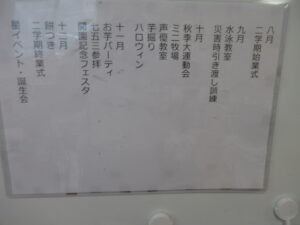 八月
二学期始業式
九月
水泳教室
災害時引き渡し訓練
十月
秋季大運動会
ミニ牧場
声優教室
芋掘り
ハロウィン
十一月
お芋パーティ
七五三参拝
開園記念フェスタ
十二月
餅つき
二学期終業式
星イベント・誕生会